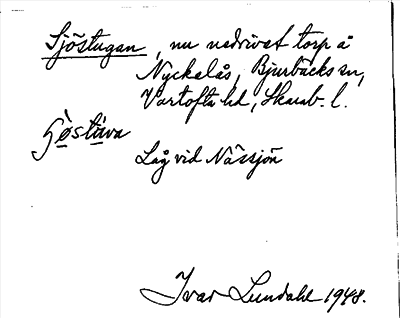 Sjöstugan, nu nedrivet torp å
Nyckelås, Bjurbäcks sn,
Vartofta hd, Skarab. l.
jò̱stù̱va
Låg vid Nässjön
Ivar Lundahl 1948.